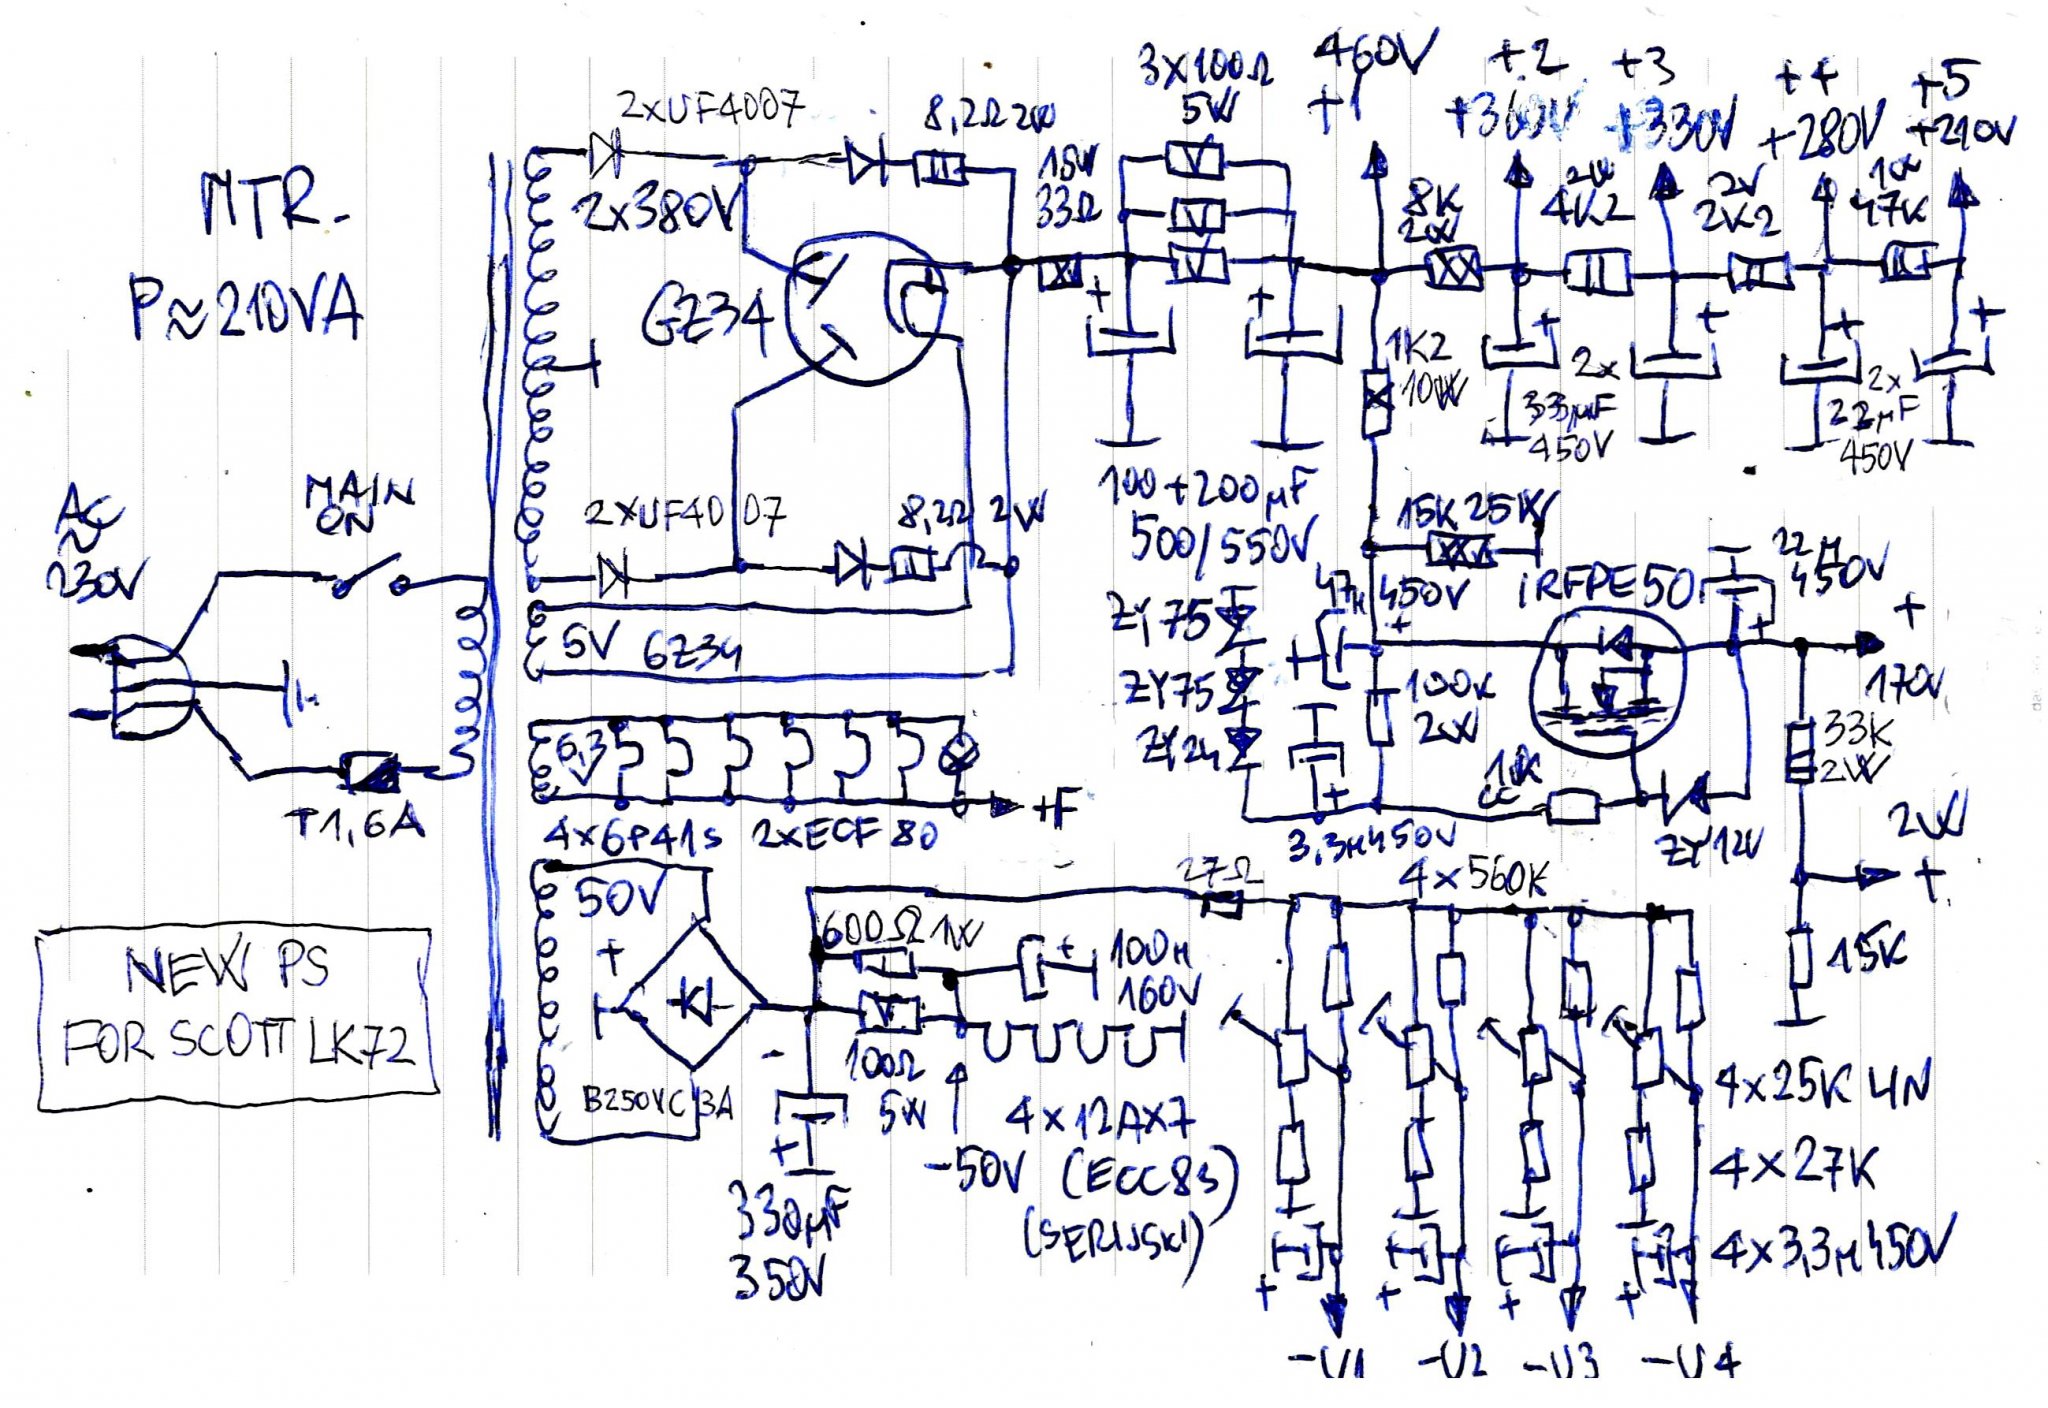 MTR-
P≈210VA
AC
~
230V
MAIN
ON
T1,6A
NEW PS
FOR SCOTT LK72
2xUF4007
2x380V
8,2Ω 2W
GZ34
2xUF4007
8,2Ω 2W
5V GZ34
6,3V
4x6P41s 2xECF80
+F
50V
+
-
B250VC 3A
15W
33Ω
3x100Ω
5W
460V
+1
+2
+360V
+3
+330V
+4
+280V
+5
+210V
8K
2W
2W
4K2
2W
2K2
1W
47K
+
+
+
+
+
+
100+200µF
500/550V
1K2
10W
33µF
450V
2x
2x
22µF
450V
15K 25W
47µ 450V
+
ZY75
ZY75
ZY24
100K
2W
+
3,3µ 450V
IRFPE50
22µ
450V
+
+
170V
10K
ZY12V
33K
2W
2W
+
15K
600Ω 1W
100Ω
5W
+
100µ
160V
-50V
4x12AX7
(ECC83)
(SERIJSKI)
+
330µF
350V
27Ω
4x560K
4x25K LIN
4x27K
4x3,3µ 450V
+
+
+
+
-U1
-U2
-U3
-U4